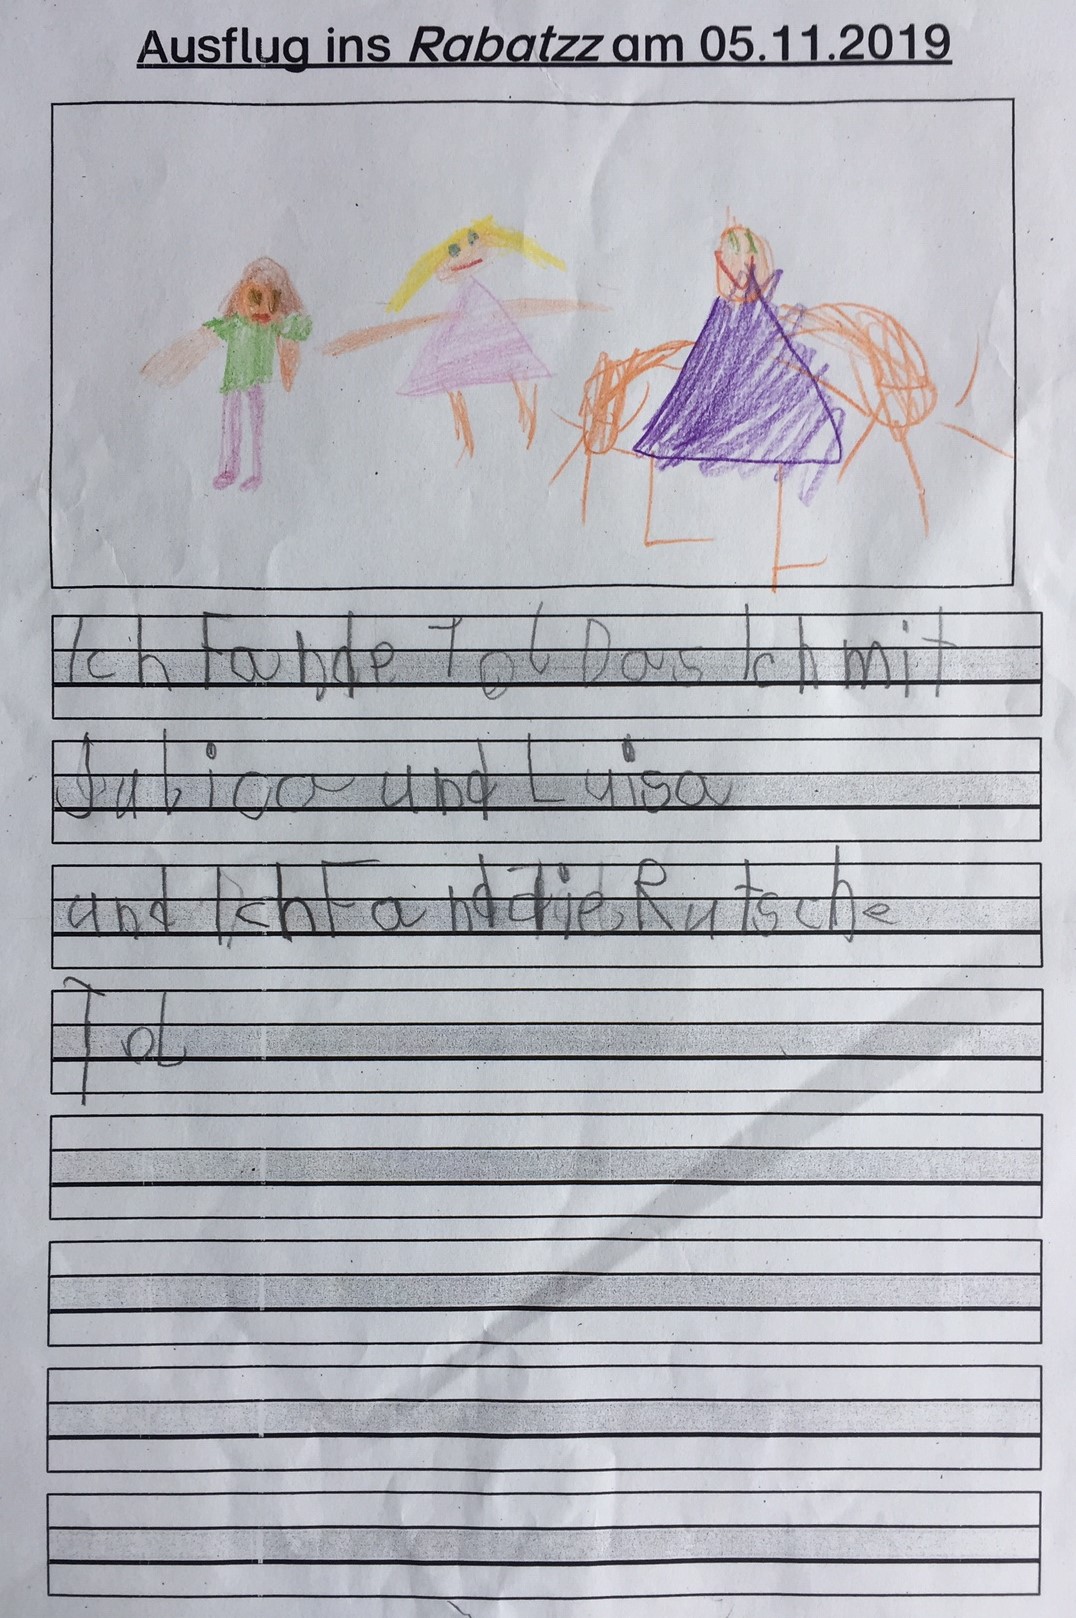 Ausflug ins Rabatzz am 05.11.2019
Ich Fande Tol Das Ich mit
und Luisa
und Ich Fand die Rutsche
Tol